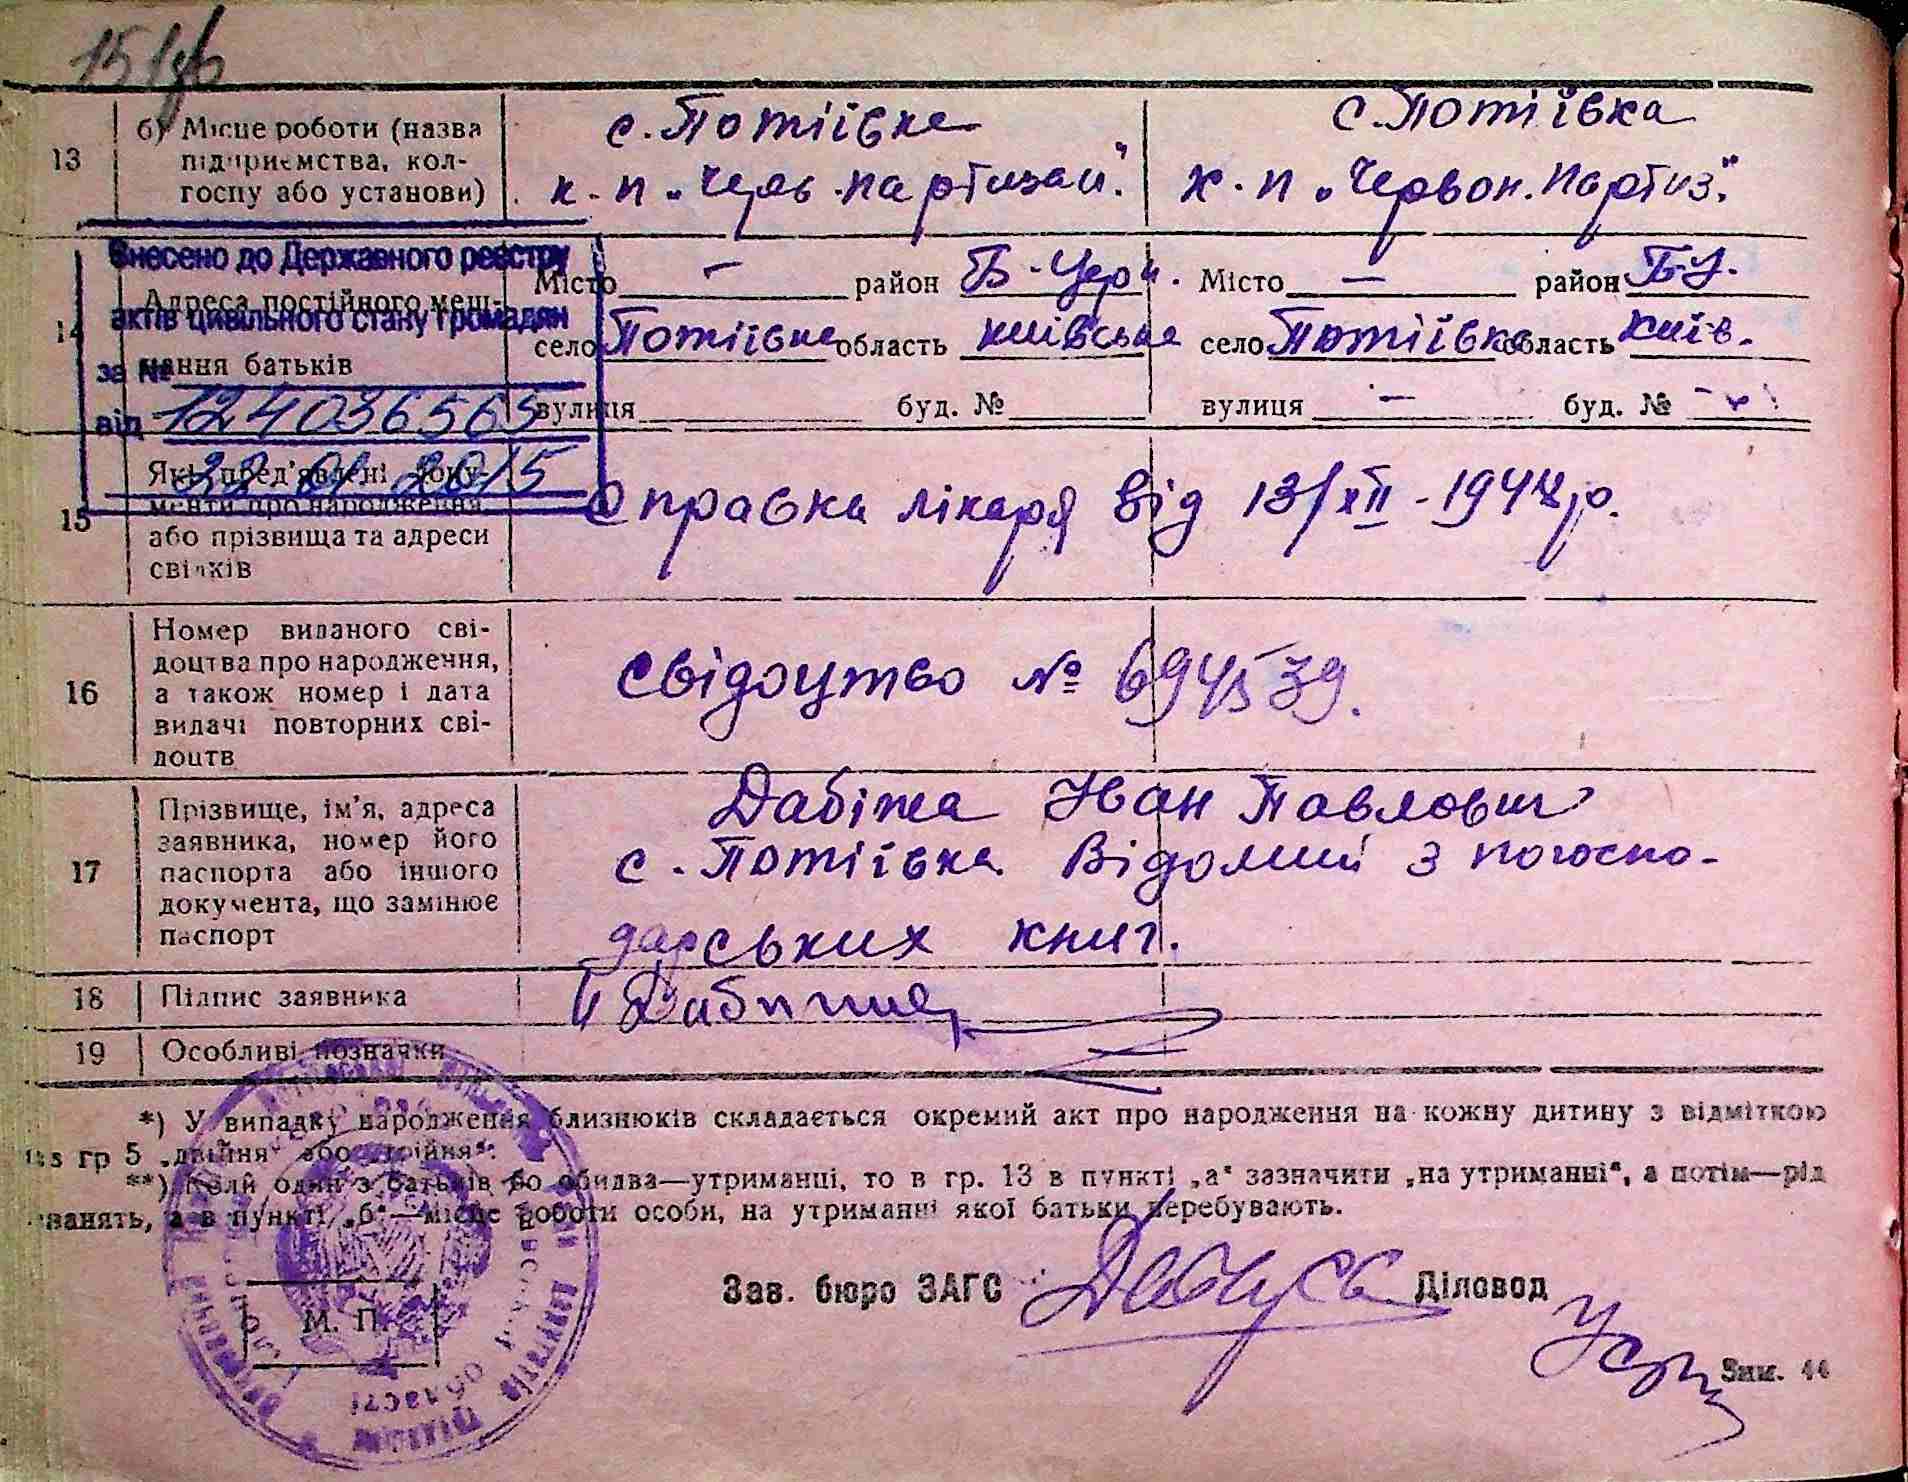 13 б) Місце роботи (назва підприємства, кол-
госпу або установи)
с. Потіївка
к-п „Черв. партизан“
с. Потіївка
к-п „Червон. Партиз.“
Внесено до Державного реєстру
актів цивільного стану громадян
за № 124036565
від 22 01 2015
14 Адреса постійного меш-
кання батьків
Місто — район Б-Церк.
село Потіївка область Київська
вулиця буд. №
Місто — район Б-Ц.
село Потіївка область Київ.
вулиця — буд. № —
15 Які пред'явлені доку-
менти про народження
або прізвища та адреси
свідків
Справка лікаря від 13/XII-1947 р.
16 Номер виданого сві-
доцтва про народження,
а також номер і дата
видачі повторних сві-
доцтв
Свідоцтво № 694539.
17 Прізвище, ім'я, адреса
заявника, номер його
паспорта або іншого
документа, що замінює
паспорт
Дабіжа Іван Павлович
с. Потіївка Відомий з погоспо-
дарських книг.
18 Підпис заявника
19 Особливі позначки
*) У випадку народження близнюків складається окремий акт про народження на кожну дитину з відміткою
гр 5 „двійня“ або „трійня“.
**) Коли один з батьків бо обидва—утриманці, то в гр. 13 в пункті „а“ зазначити „на утриманні“, а потім—рід
занять, а в пункті „б“—місце роботи особи, на утриманні якої батьки перебувають.
Зав. бюро ЗАГС Діловод
М. П.
Зам. 44